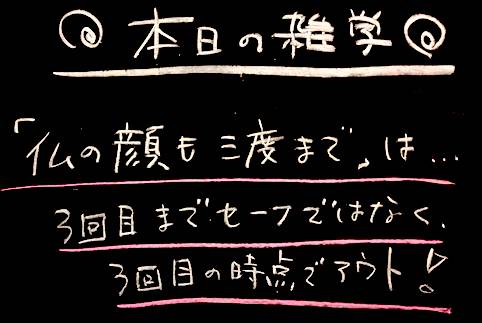 本日の雑学
「仏の顔も三度まで」は…
3回目までセーフではなく、
3回目の時点でアウト!